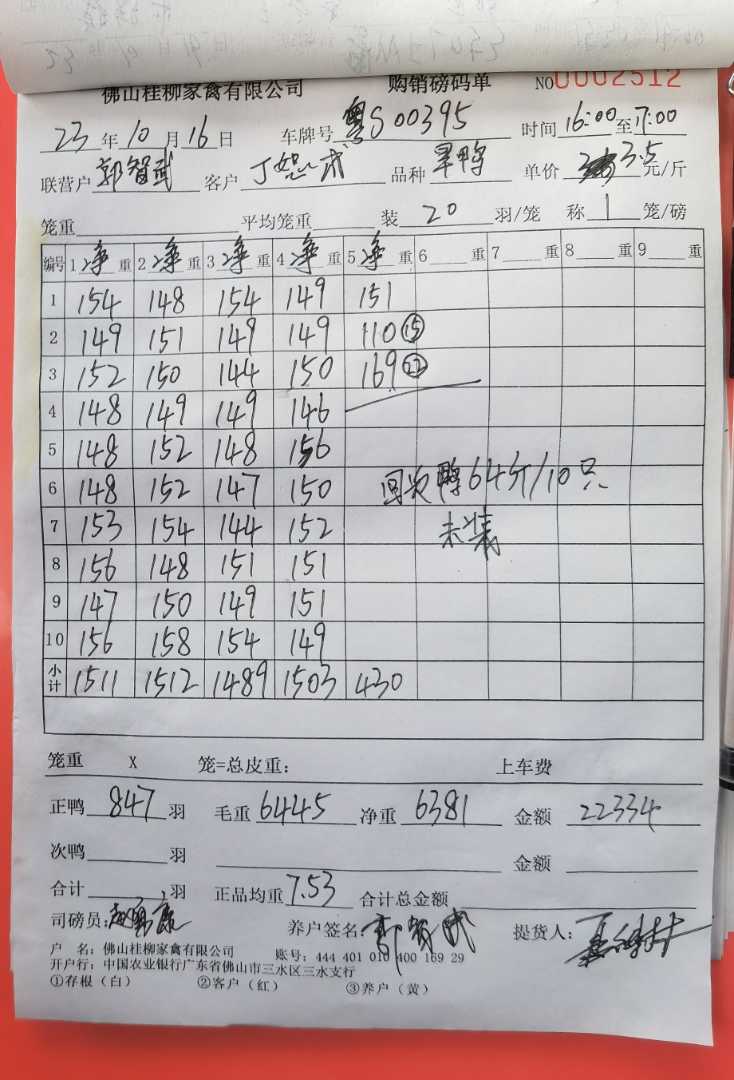 佛山桂柳家禽有限公司 购销磅码单 NO0002512
23年10月16日 车牌号 粤S00395 时间16:00至17:00
联营户 郭智武 客户 丁 品种 旱鸭 单价 3.5元/斤
笼重 平均笼重 装 20 羽/笼 称 1 笼/磅
编号 1净重 2净重 3净重 4净重 5净重 6重 7重 8重 9重
1 154 148 154 149 151
2 149 151 149 149 110⑮
3 152 150 144 150 169㉒
4 148 149 149 146
5 148 152 148 156
6 148 152 147 150 回次鸭64斤/10只
7 153 154 144 152 未装
8 156 148 151 151
9 147 150 149 151
10 156 158 154 149
小计 1511 1512 1489 1503 430
笼重 X 笼=总皮重: 上车费
正鸭 847 羽 毛重 6445 净重 6381 金额 22334
次鸭 羽 金额
合计 羽 正品均重 7.53 合计总金额
司磅员: 养户签名: 郭智武 提货人:
户 名: 佛山桂柳家禽有限公司 账号: 444 401 010 400 169 29
开户行: 中国农业银行广东省佛山市三水区三水支行
①存根（白） ②客户（红） ③养户（黄）